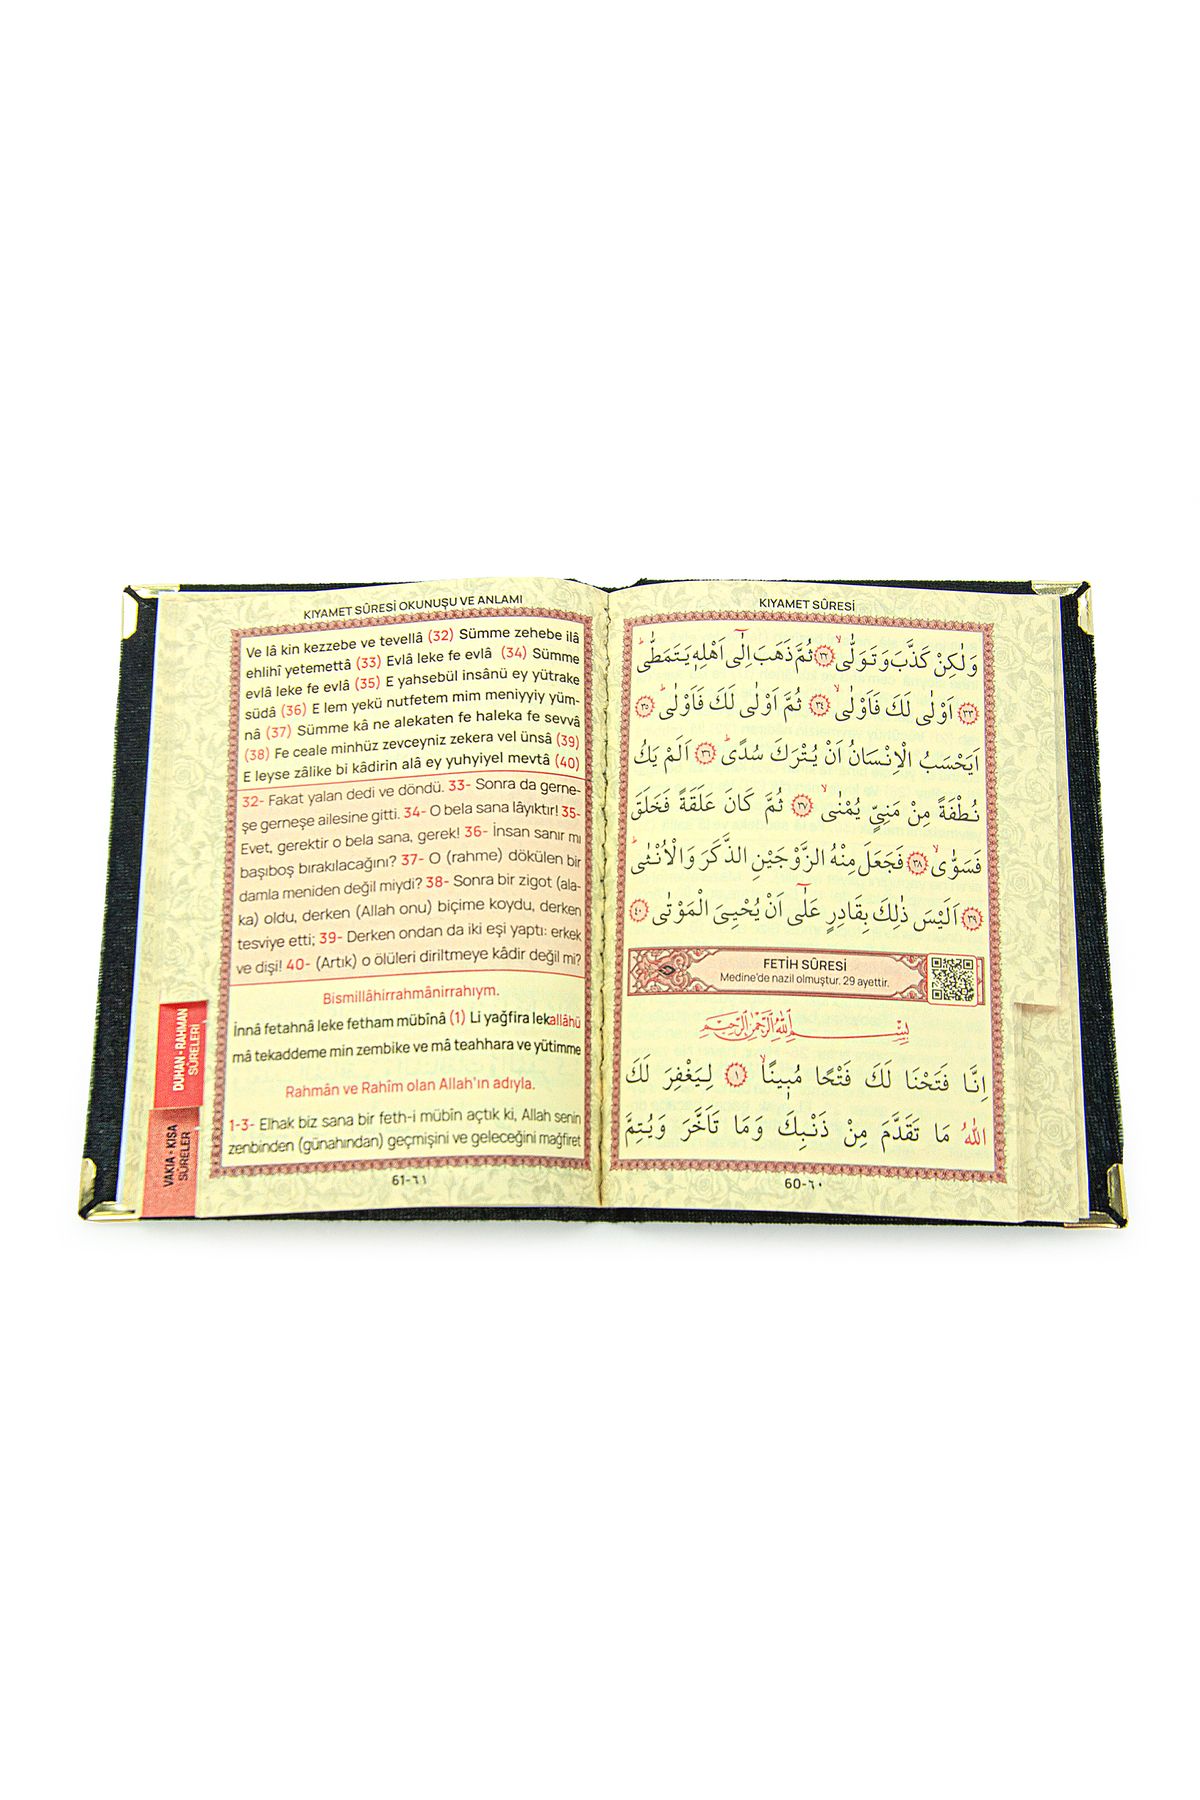 KIYAMET SÛRESİ OKUNUŞU VE ANLAMI
Ve lâ kin kezzebe ve tevellâ (32) Sümme zehebe ilâ
ehlihî yetemettâ (33) Evlâ leke fe evlâ (34) Sümme
evlâ leke fe evlâ (35) E yahsebül insânü ey yütrake
südâ (36) E lem yekü nutfetem mim meniyyiy yüm-
nâ (37) Sümme kâ ne alekaten fe haleka fe sevvâ
(38) Fe ceale minhüz zevceyniz zekera vel ünsâ (39)
E leyse zâlike bi kâdirin alâ ey yuhyiyel mevtâ (40)
32- Fakat yalan dedi ve döndü. 33- Sonra da gerne-
şe gerneşe ailesine gitti. 34- O bela sana lâyıktır! 35-
Evet, gerektir o bela sana, gerek! 36- İnsan sanır mı
başıboş bırakılacağını? 37- O (rahme) dökülen bir
damla meniden değil miydi? 38- Sonra bir zigot (ala-
ka) oldu, derken (Allah onu) biçime koydu, derken
tesviye etti; 39- Derken ondan da iki eşi yaptı: erkek
ve dişi! 40- (Artık) o ölüleri diriltmeye kâdir değil mi?
Bismillâhirrahmânirrahıym.
İnnâ fetahnâ leke fetham mübînâ (1) Li yağfira lekallâhü
mâ tekaddeme min zembike ve mâ teahhara ve yütimme
Rahmân ve Rahîm olan Allah'ın adıyla.
1-3- Elhak biz sana bir feth-i mübîn açtık ki, Allah senin
zenbinden (günahından) geçmişini ve geleceğini mağfiret
61-٦١
DUHAN - RAHMAN
SÛRELERİ
VAKIA - KISA
SÛRELER
KIYAMET SÛRESİ
وَلٰكِنْ كَذَّبَ وَتَوَلّٰىۙ ﴿٣٢﴾ ثُمَّ ذَهَبَ اِلٰٓى اَهْلِه۪ يَتَمَطّٰىۜ
﴿٣٣﴾ اَوْلٰى لَكَ فَاَوْلٰىۙ ﴿٣٤﴾ ثُمَّ اَوْلٰى لَكَ فَاَوْلٰىۜ ﴿٣٥﴾
اَيَحْسَبُ الْاِنْسَانُ اَنْ يُتْرَكَ سُدًىۜ ﴿٣٦﴾ اَلَمْ يَكُ
نُطْفَةً مِنْ مَنِيٍّ يُمْنٰىۙ ﴿٣٧﴾ ثُمَّ كَانَ عَلَقَةً فَخَلَقَ
فَسَوّٰىۙ ﴿٣٨﴾ فَجَعَلَ مِنْهُ الزَّوْجَيْنِ الذَّكَرَ وَالْاُنْثٰىۜ
﴿٣٩﴾ اَلَيْسَ ذٰلِكَ بِقَادِرٍ عَلٰٓى اَنْ يُحْيِيَ الْمَوْتٰى ﴿٤٠﴾
FETİH SÛRESİ
Medine'de nazil olmuştur. 29 ayettir.
بِسْمِ اللّٰهِ الرَّحْمٰنِ الرَّحِيمِ
اِنَّا فَتَحْنَا لَكَ فَتْحًا مُب۪ينًاۙ ﴿١﴾ لِيَغْفِرَ لَكَ
اللّٰهُ مَا تَقَدَّمَ مِنْ ذَنْبِكَ وَمَا تَاَخَّرَ وَيُتِمَّ
60-٦٠